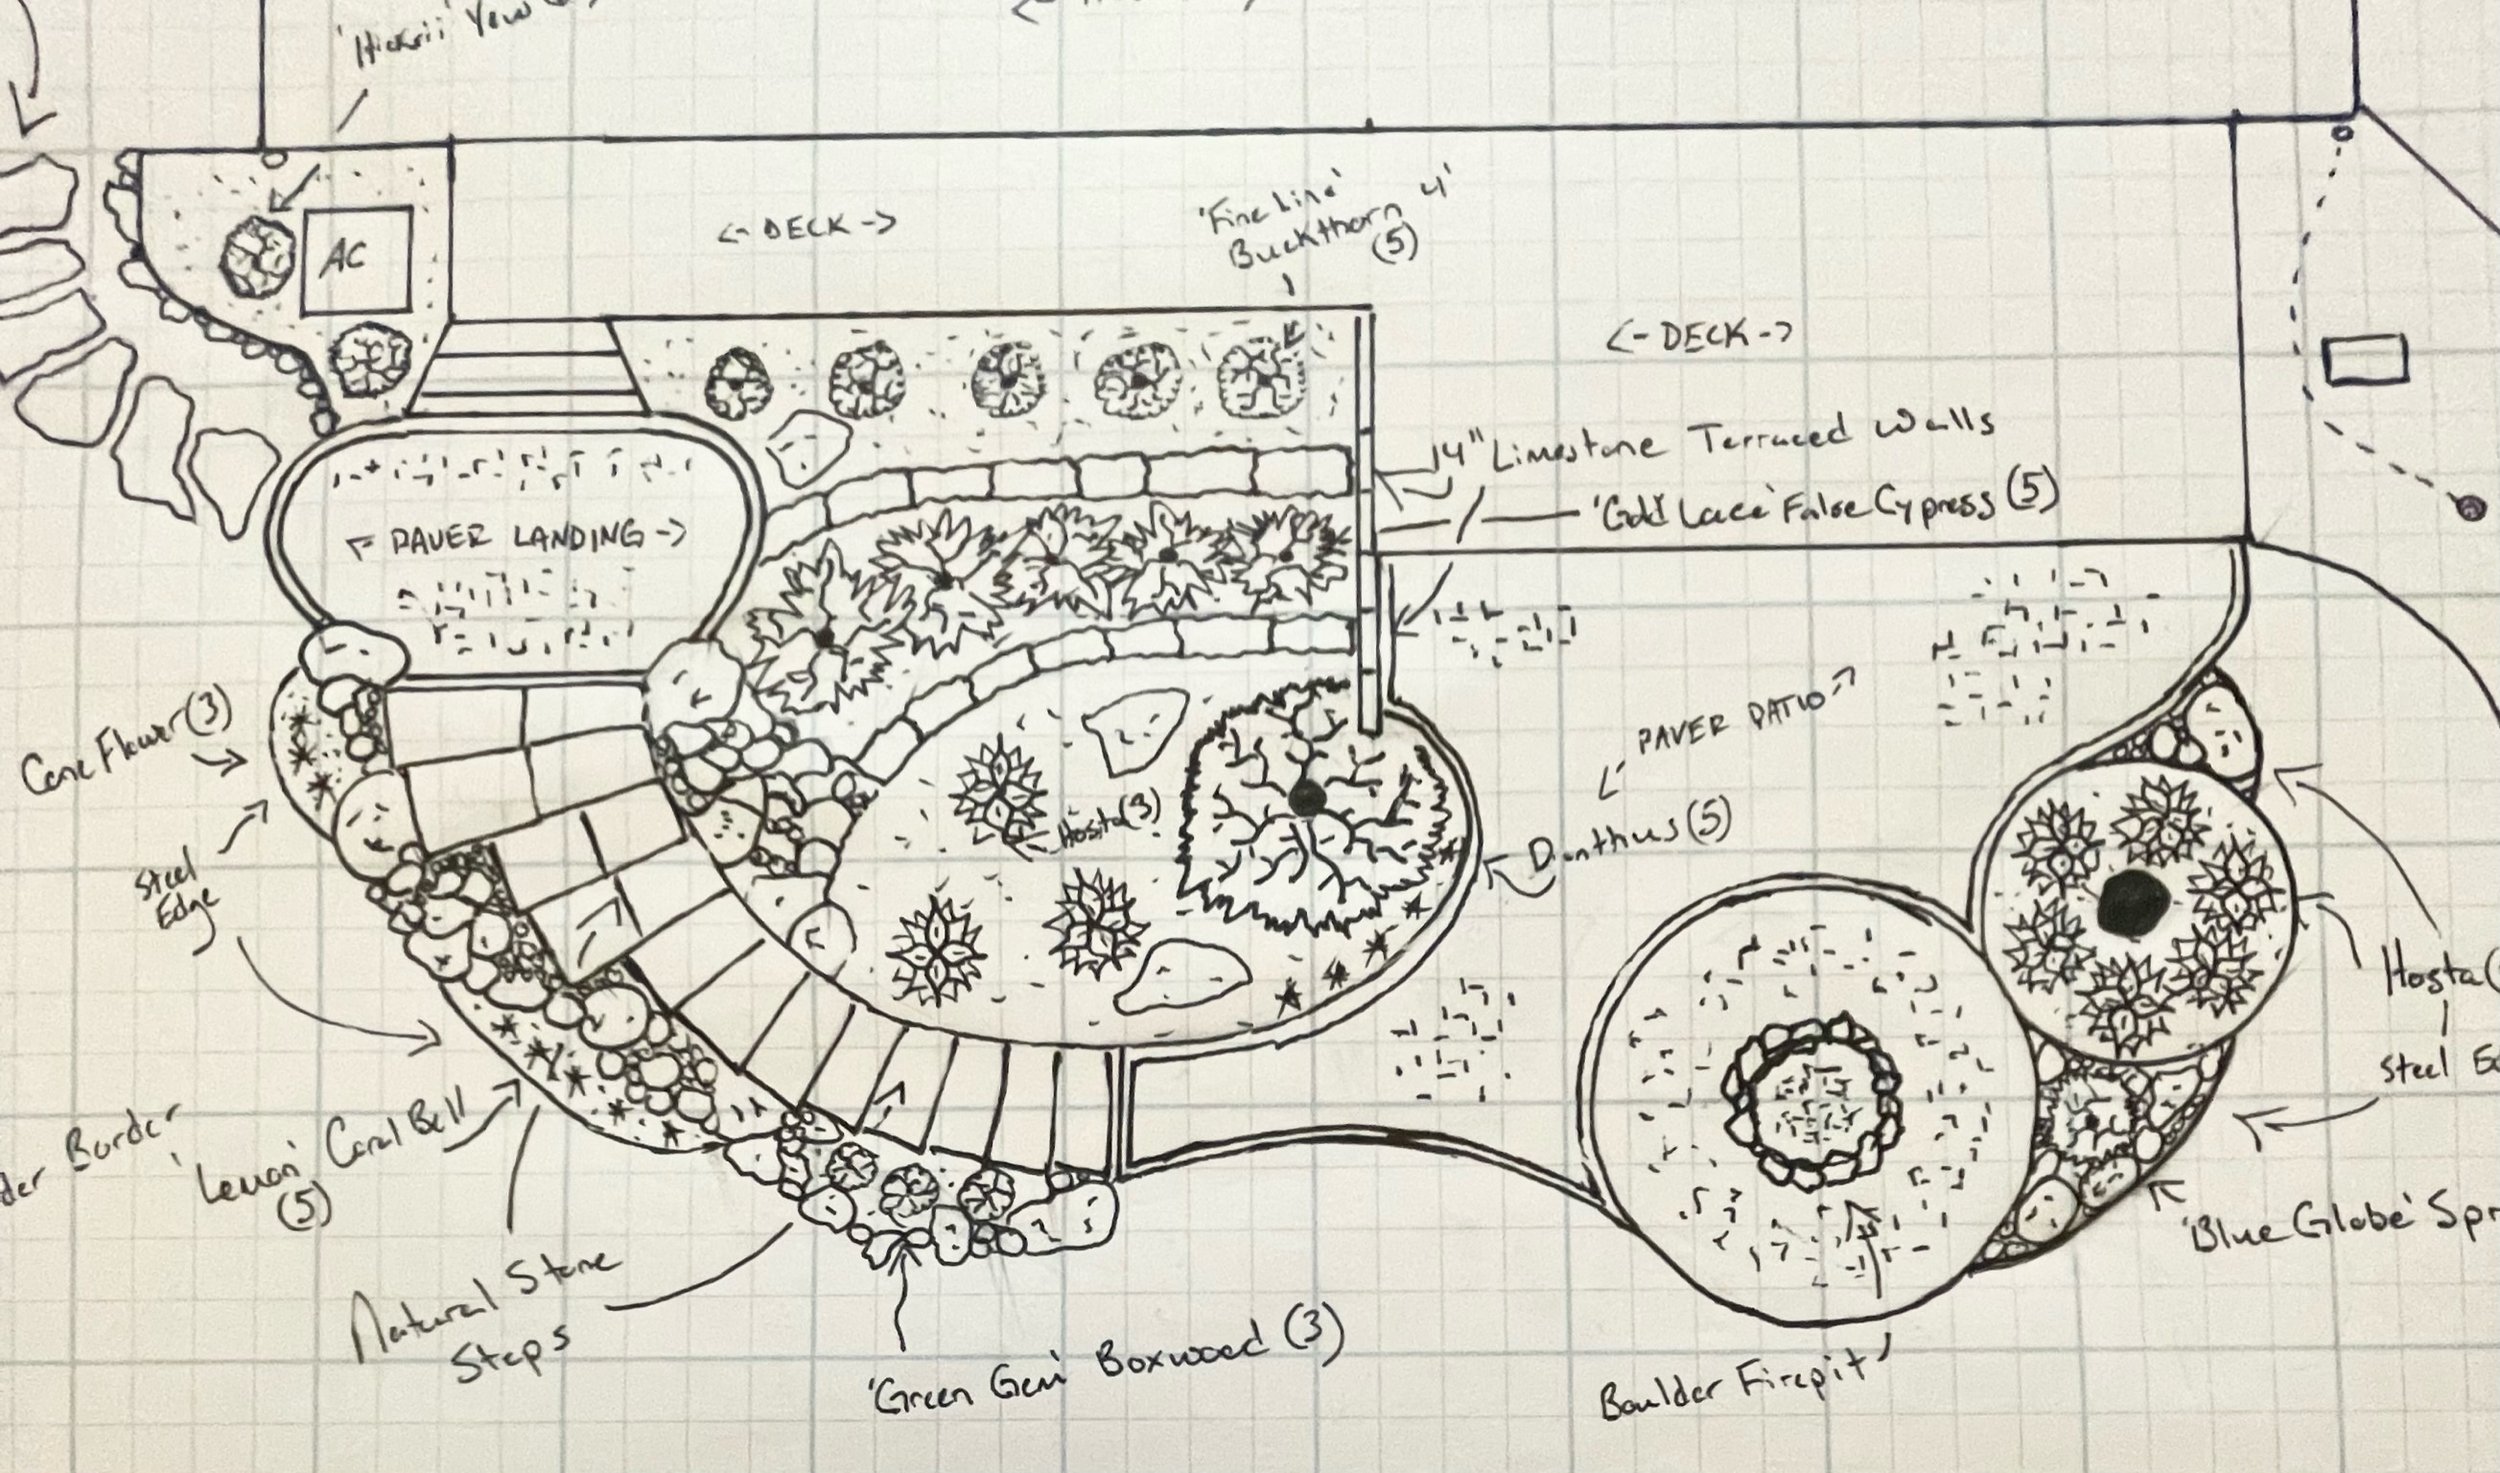 'Hicksii' Yew
AC
<- DECK ->
'Fine Line' 4'
Buckthorn
(5)
<- DECK ->
14" Limestone Terraced Walls
'Gold Lace' False Cypress (5)
<- PAVER LANDING ->
Cone Flower (3)
Steel
Edge
Hosta (3)
<- PAVER PATIO ->
Dianthus (5)
Hosta (
Steel Ed
der Border
'Lemon' Coral Bell
(5)
Natural Stone
Steps
'Green Gem' Boxwood (3)
Boulder Firepit
'Blue Globe' Spr